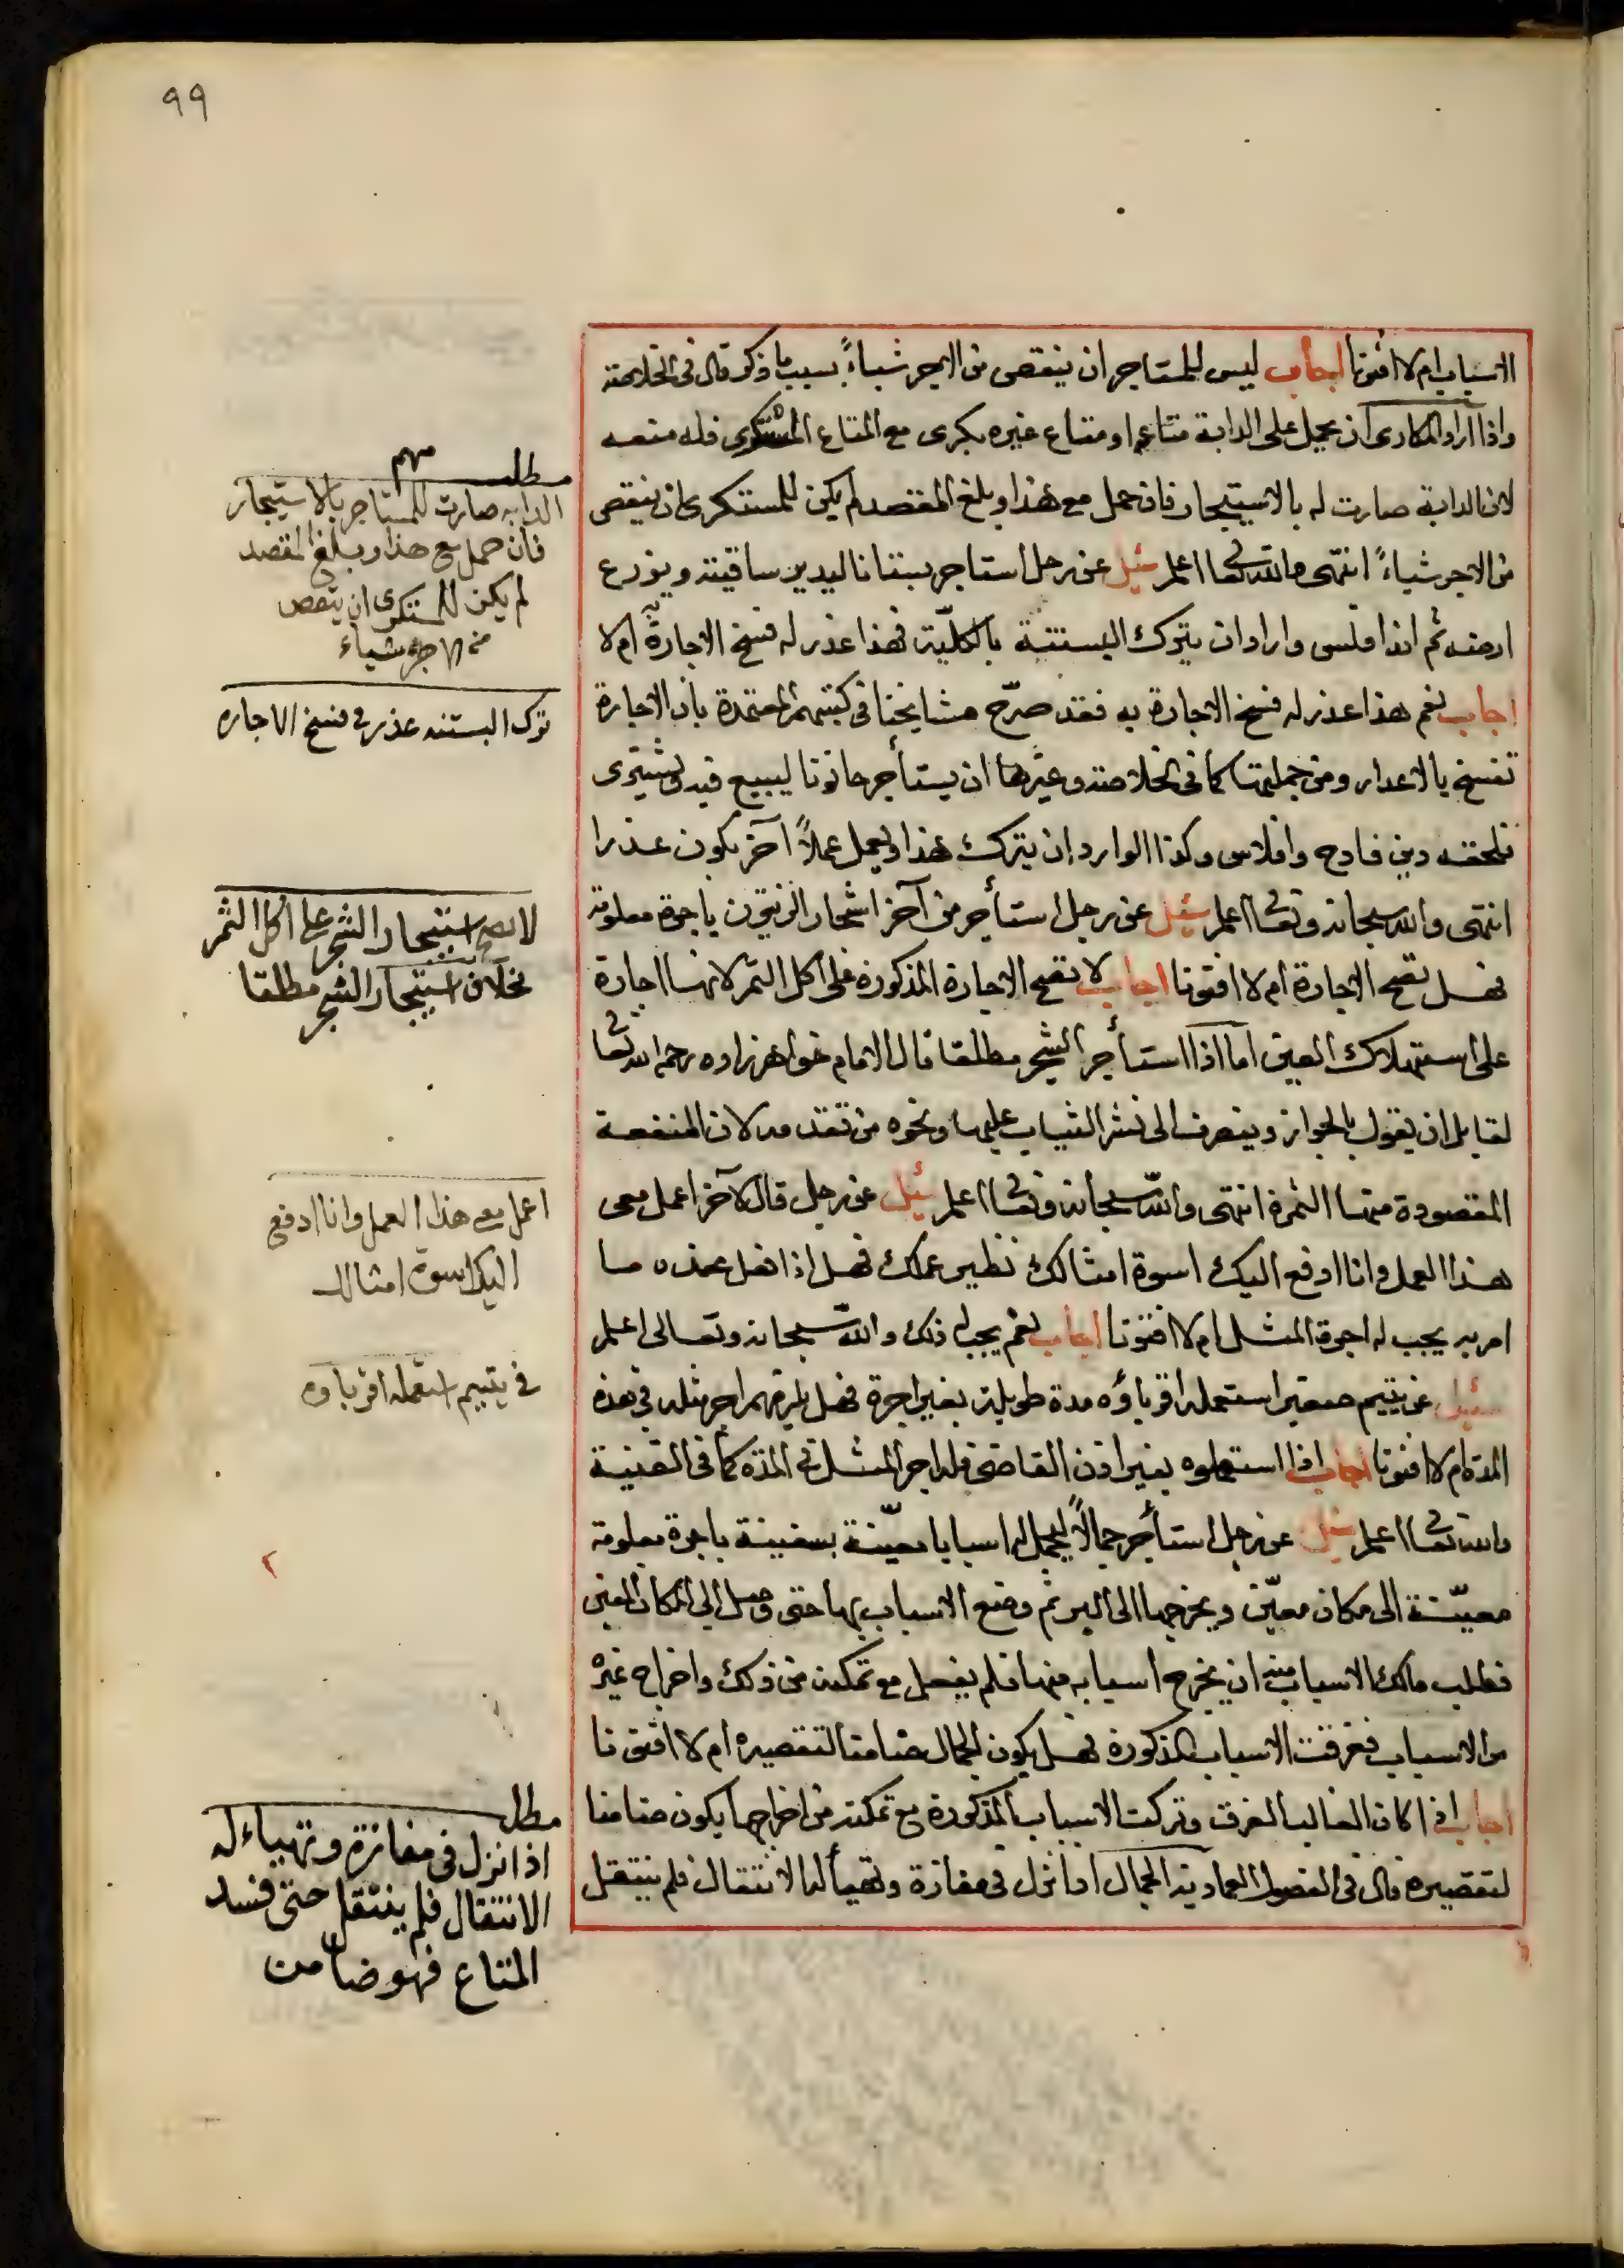 ٩٩
الاسباب ام لا افتونا اجاب ليس للمستاجر ان ينقص من الاجر شياءً بسبب ما ذكر قال فى الخلاصة
واذا اراد المكارى ان يحمل على الدابة متاعه او متاع غيره بكرى مع المتاع المستكرى فله منعه
لان الدابة صارت له بالاستيجار فان حمل مع هذا وبلغ المقصد لم يكن للمستكرى ان ينقص
من الاجر شياءً انتهى والله تعالى اعلم سئل عن رجل استاجر بستانا ليدير ساقيته ويزرع
ارضه ثم انه افلس واراد ان يترك البستنة بالكليّة فهذا عذر له فسخ الاجارة به ام لا
اجاب نعم هذا عذر له فسخ الاجارة به فقد صرّح مشايخنا فى كتبهم المعتمدة بان الاجارة
تفسخ بالاعذار ومن جملتها كما فى الخلاصة وغيرها ان يستأجر حانوتا ليبيع فيه ويشترى
فلحقه دين فادح وافلاس وكذا لو اراد ان يترك هذا ويعمل عملاً آخر يكون عذرا
انتهى والله سبحانه وتعالى اعلم سئل عن رجل استأجر من آخر اشجار الزيتون باجرة معلومة
فهل تصح الاجارة ام لا افتونا اجاب لا تصح الاجارة المذكورة على اكل الثمر لانها اجارة
على استهلاك العين اما اذا استأجر الشجر مطلقا قال الامام خواهرزاده رحمه الله تعالى
لقايل ان يقول بالجواز وينصرف الى نشر الثياب عليها ونحوه من تقدمه لان المنفعة
المقصودة منها الثمرة انتهى والله سبحانه وتعالى اعلم سئل عن رجل قال لآخر اعمل معى
هذا العمل وانا ادفع اليك اسوة امثالك نظير عملك فهل اذا فعل عنده ما
امر به يجب له اجرة المثل ام لا افتونا اجاب نعم يجب له ذلك والله سبحانه وتعالى اعلم
سئل عن يتيم صغير استعمله اقرباؤه مدة طويلة بغير اجرة فهل يلزمهم اجر مثله فى هذه
المدة ام لا افتونا اجاب اذا استعملوه بغير اذن القاضى فله اجر المثل فى المدة كما فى القنية
والله تعالى اعلم سئل عن رجل استأجر جمالاً ليحمل له اسبابا معيّنة بسفينة باجرة معلومة
معيّنة الى مكان معيّن ويخرجها الى البر ثم وضع الاسباب بها حتى وصل الى المكان المعين
فطلب مالك الاسباب منه ان يخرج اسبابه منها فلم يفعل مع تمكنه من ذلك واخراج غيره
من الاسباب فغرقت الاسباب المذكورة فهل يكون الجمال ضامنا لتقصيره ام لا افتونا
اجاب اذا كان الغالب الغرق وتركت الاسباب المذكورة مع تمكنه من اخراجها يكون ضامنا
لتقصيره قال فى الفصول العمادية الجمال اذا نزل فى مفازة وتهيأ له الانتقال فلم ينتقل
مطلب مهم
الدابه صارت للمستاجر بالاستيجار
فان حمل مع هذا وبلغ المقصد
لم يكن للمستكرى ان ينقص
من الاجره شياء
ترك البستنه عذر فى فسخ الاجاره
لا يصح استيجار الشجر على اكل الثمر
بخلاف استيجار الشجر مطلقا
اعمل معى هذا العمل وانا ادفع
اليك اسوة امثالك
فى يتيم استعمله اقرباوه
مطلب
اذا نزل فى مفازة وتهياء له
الانتقال فلم ينتقل حتى فسد
المتاع فهو ضامن